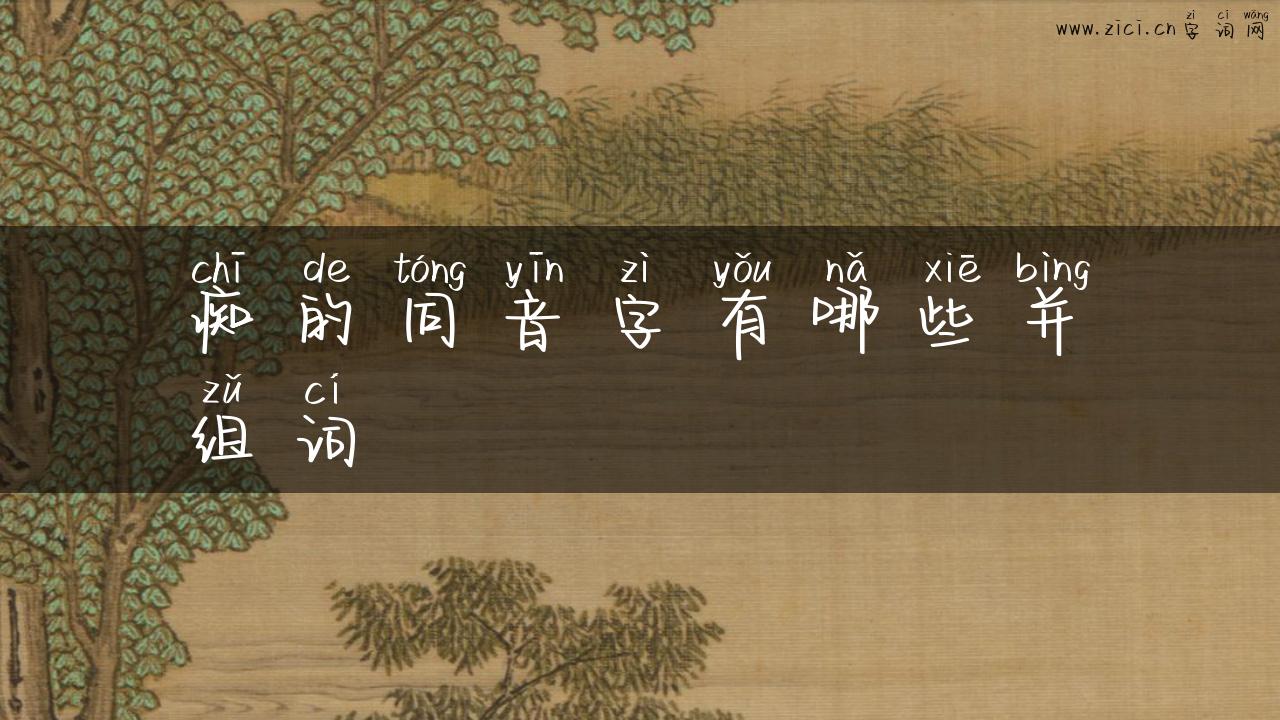 zì cí wǎng
www.zici.cn字词网
chī de tóng yīn zì yǒu nǎ xiē bìng
痴的同音字有哪些并
zǔ cí
组词